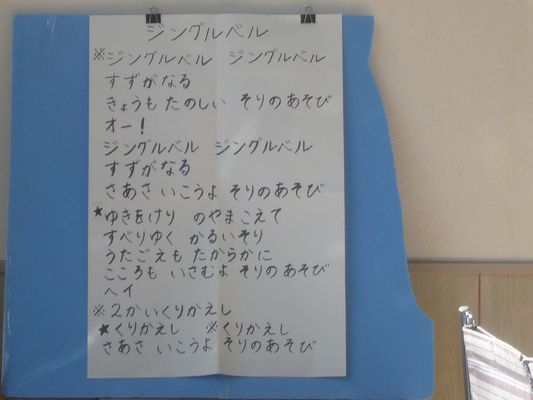 ジングルベル
※ジングルベル ジングルベル
すずがなる
きょうも たのしい そりのあそび
オー!
ジングルベル ジングルベル
すずがなる
さあさ いこうよ そりのあそび
★ゆきをけり のやまこえて
すべりゆく かるいそり
うたごえも たからかに
こころも いさむよ そりのあそび
ヘイ
※2かいくりかえし
★くりかえし ※くりかえし
さあさ いこうよ そりのあそび